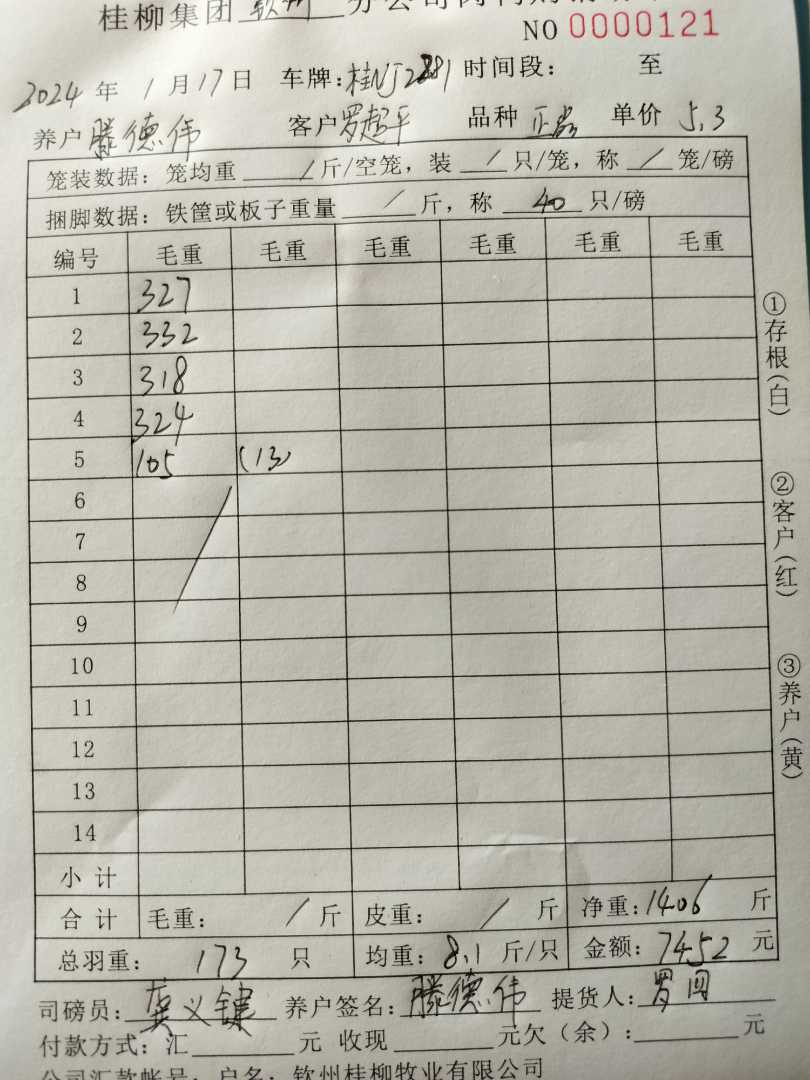 桂柳集团 钦州 分公司肉
NO 0000121
2024 年 1 月 17 日 车牌：桂NJ2281 时间段： 至
养户 滕德伟 客户 罗超平 品种 正常 单价 5.3
笼装数据：笼均重 / 斤/空笼，装 / 只/笼，称 / 笼/磅
捆脚数据：铁筐或板子重量 / 斤，称 40 只/磅
编号 毛重 毛重 毛重 毛重 毛重 毛重
1 327
2 332
3 318
4 324
5 105 (13)
6
7
8
9
10
11
12
13
14
小计
合计 毛重： / 斤 皮重： / 斤 净重：1406 斤
总羽重： 173 只 均重：8.1 斤/只 金额：7452 元
司磅员：龚义键 养户签名：滕德伟 提货人：罗
付款方式：汇 元 收现 元欠（余）： 元
公司汇款帐号：户名：钦州桂柳牧业有限公司
①存根（白）
②客户（红）
③养户（黄）